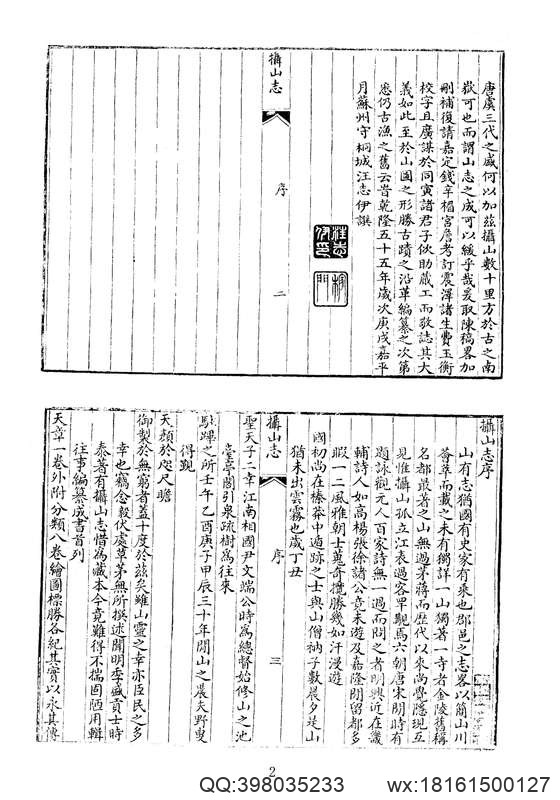 唐虞三代之盛何以加茲攝山數十里方於古之南
嶽可也而謂山志之成可以緩乎哉爰取陳稿畧加
刪補復請嘉定錢辛楣宮詹考訂震澤諸生費玉衡
校字且廣謀於同寅諸君子佽助蕆工而敬誌其大
義如此至於山圖之形勝古蹟之沿革編纂之次第
悉仍古漁之舊云旹乾隆五十五年歲次庚戌嘉平
月蘇州守桐城汪志伊譔
攝山志
序
二
攝山志序
山有志猶國有史家有乘也郡邑之志畧以簡山川
薈萃而載之未有獨詳一山獨著一寺者金陵舊稱
名都最著之山無過茅蔣而歷代以來尚覺隱現互
見惟攝山孤立江表過客罕覯焉六朝唐宋間時有
題詠觀元人百家詩無一過而問之者明興近在畿
輔詩人如高楊張徐諸公竟未遊及嘉隆間留都多
暇一二風雅朝士蒐奇攬勝幾如汗漫遊
國初尚在榛莽中遁跡之士與山僧衲子數晨夕是山
猶未出雲霧也歲丁丑
攝山志
序
三
聖天子二幸江南相國尹文端公時為總督始修山之池
臺亭閣引泉疏樹為往來
駐蹕之所壬午乙酉庚子甲辰三十年間山之晨夫野叟
得覲
天顏於咫尺瞻
御製於無窮者蓋十度於茲矣雖山靈之幸亦臣民之多
幸也竊念毅伏處草茅無所撰述聞明季盛貢士時
泰著有攝山志惜為藏本今竟難得不揣固陋用輯
往事編纂成書首列
天章一卷外附分類八卷繪圖標勝各紀其實以永其傳
2
QQ:398035233
wx:18161500127